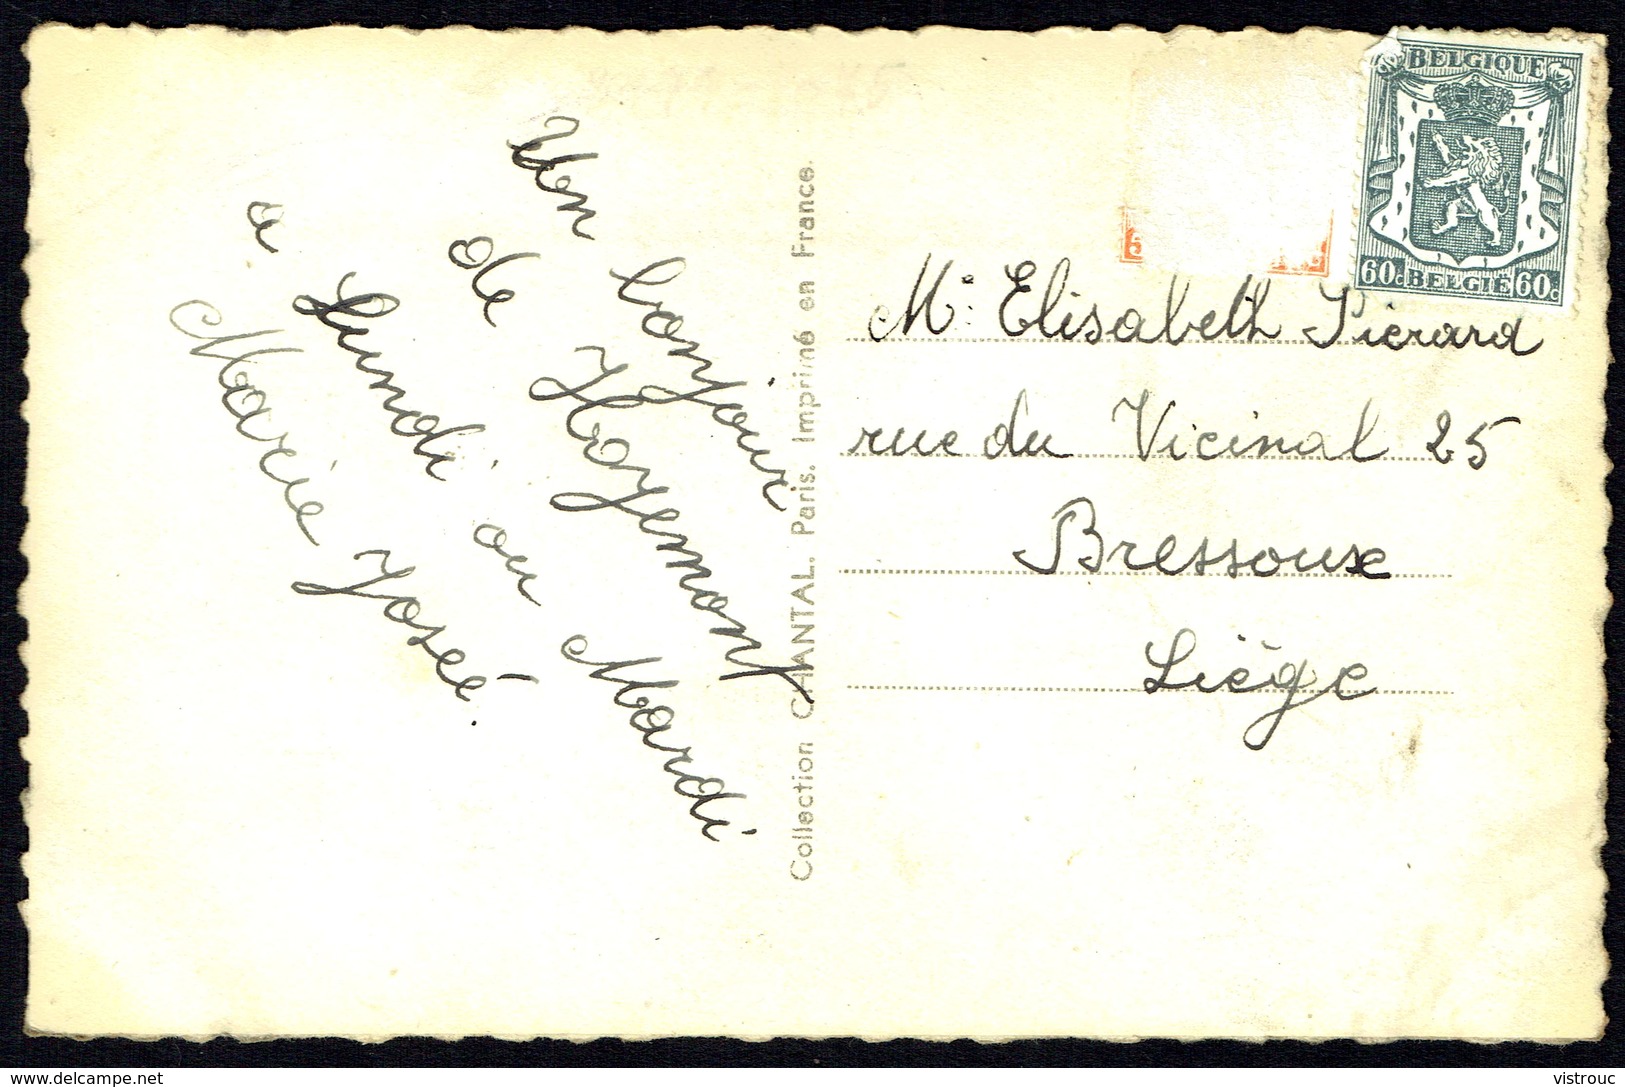 Un bonjour
de Hoyemont
a Lundi ou Mardi
Marie José.
Collection CHANTAL. Paris. Imprimé en France.
BELGIQUE
60c BELGIË 60c
Me: Elisabeth Piérard
rue du Vicinal 25
Bressoux
Liège
vistrouc